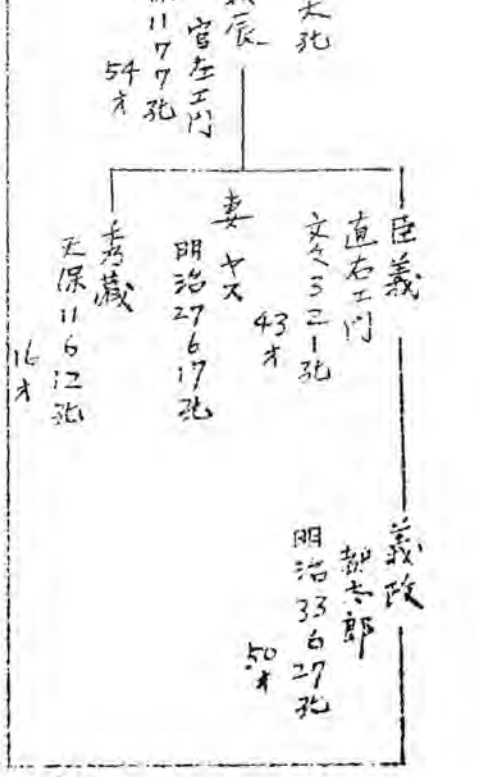 官左エ門
11 7 7 死
54才
臣義
直右エ門
文久 3 2 1 死
43才
妻 ヤス
明治 27 6 17 死
秀蔵
天保 11 6 12 死
16才
義政
太郎
明治 33 6 27 死
50才